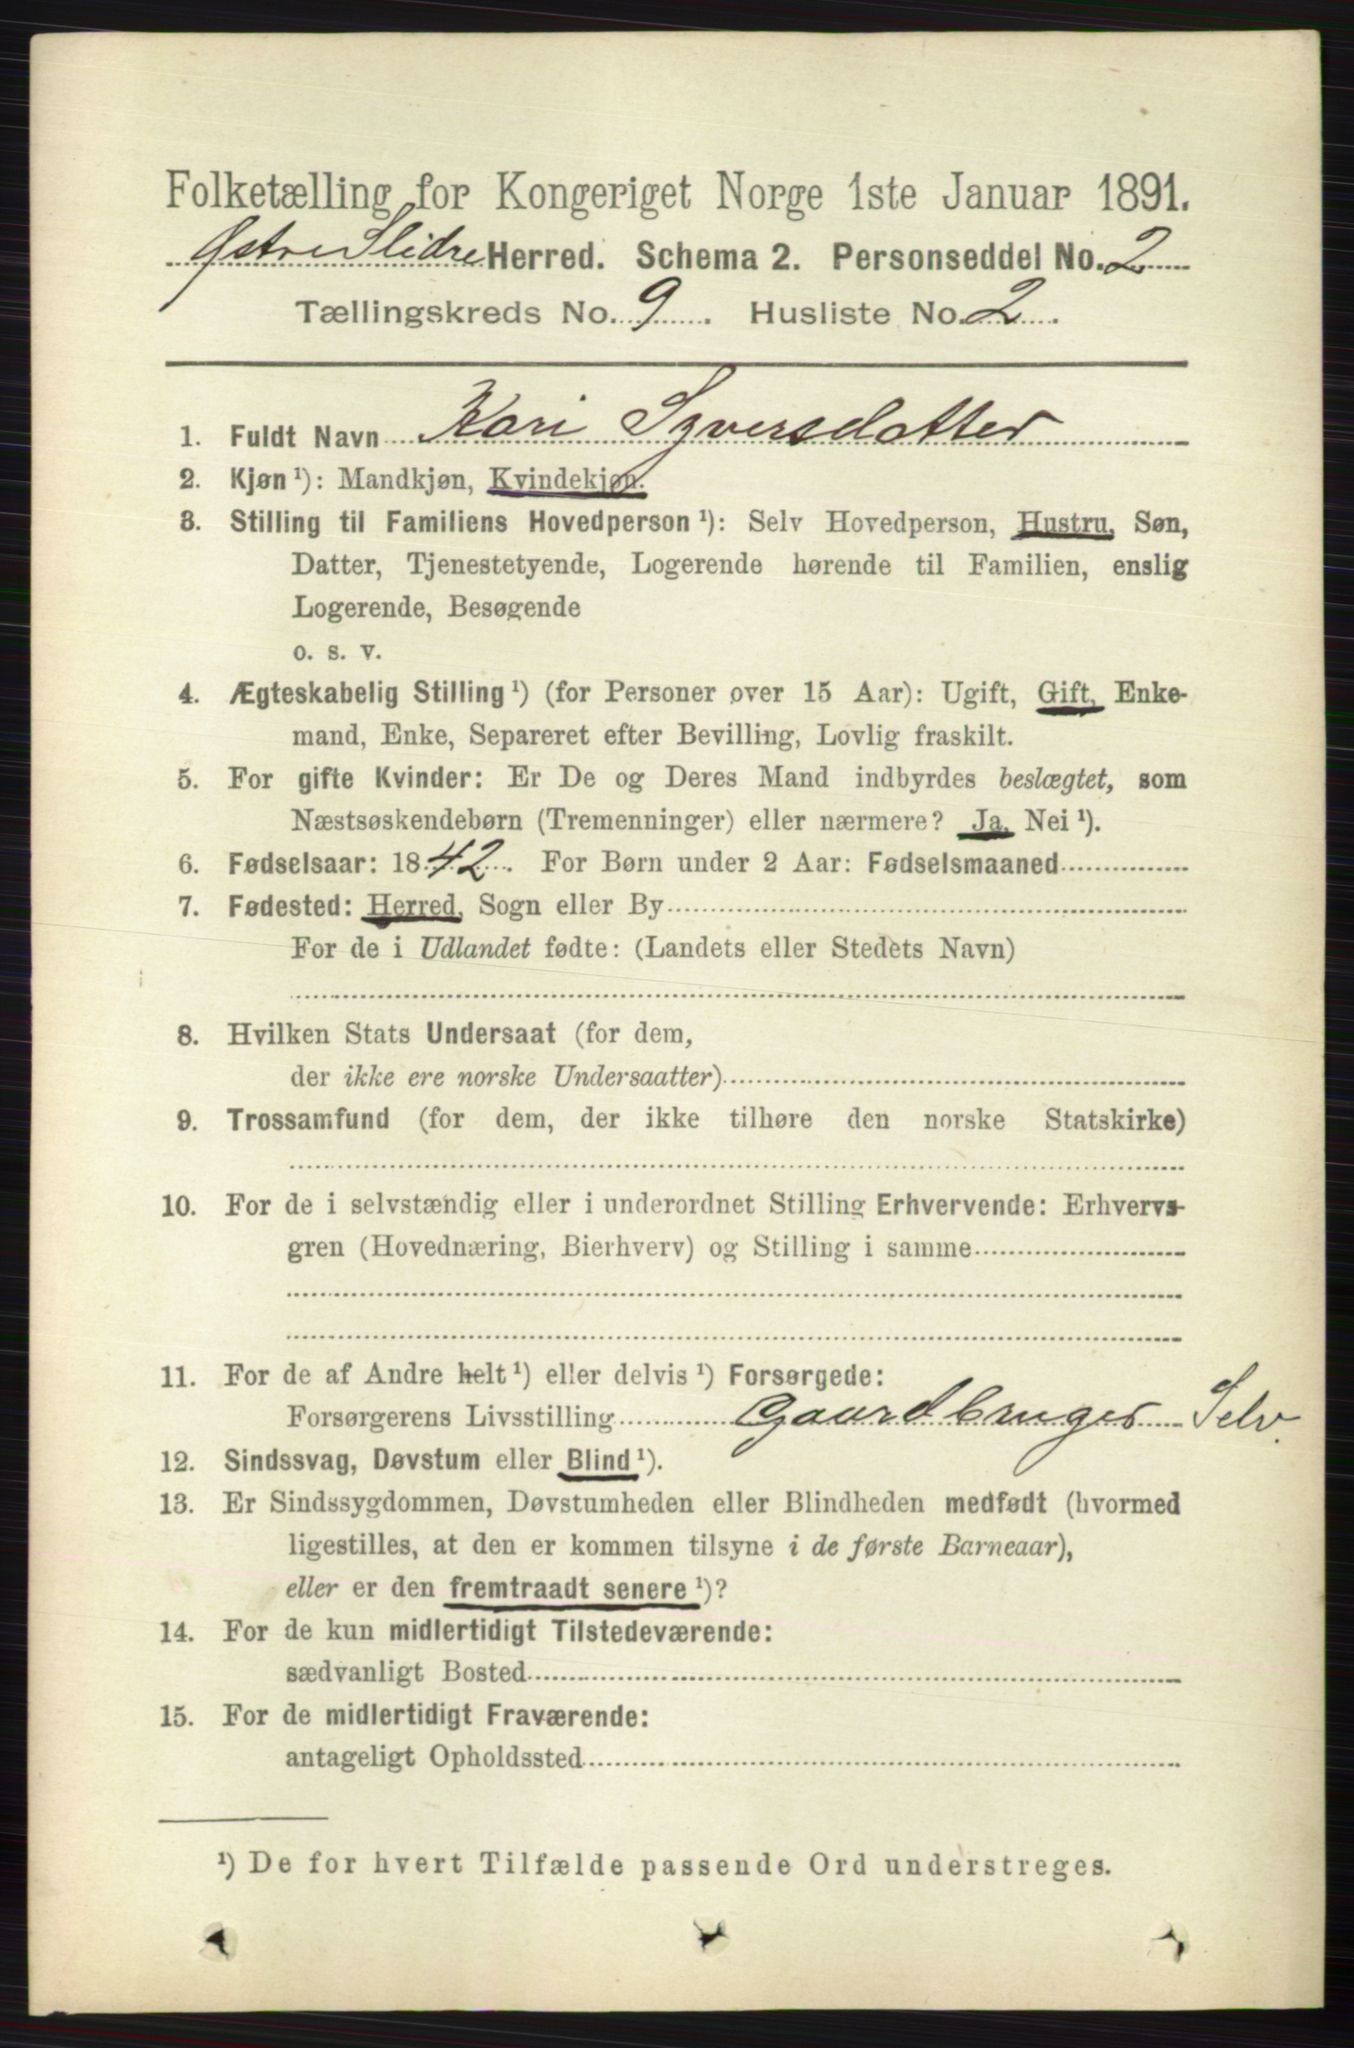 Folketælling for Kongeriget Norge 1ste Januar 1891.
Østre Slidre Herred. Schema 2. Personseddel No. 2
Tællingskreds No. 9. Husliste No. 2.
1. Fuldt Navn Kari Syversdatter
2. Kjøn¹): Mandkjøn, Kvindekjøn.
3. Stilling til Familiens Hovedperson¹): Selv Hovedperson, Hustru, Søn,
Datter, Tjenestetyende, Logerende hørende til Familien, enslig
Logerende, Besøgende
o. s. v.
4. Ægteskabelig Stilling¹) (for Personer over 15 Aar): Ugift, Gift, Enke-
mand, Enke, Separeret efter Bevilling, Lovlig fraskilt.
5. For gifte Kvinder: Er De og Deres Mand indbyrdes beslægtet, som
Næstsøskendebørn (Tremenninger) eller nærmere? Ja, Nei¹).
6. Fødselsaar: 1842. For Børn under 2 Aar: Fødselsmaaned
7. Fødested: Herred, Sogn eller By
For de i Udlandet fødte: (Landets eller Stedets Navn)
8. Hvilken Stats Undersaat (for dem,
der ikke ere norske Undersaatter)
9. Trossamfund (for dem, der ikke tilhøre den norske Statskirke)
10. For de i selvstændig eller i underordnet Stilling Erhvervende: Erhvervs-
gren (Hovednæring, Bierhverv) og Stilling i samme
11. For de af Andre helt¹) eller delvis¹) Forsørgede:
Forsørgerens Livsstilling Gaardbruger Selv.
12. Sindssvag, Døvstum eller Blind¹).
13. Er Sindssygdommen, Døvstumheden eller Blindheden medfødt (hvormed
ligestilles, at den er kommen tilsyne i de første Barneaar),
eller er den fremtraadt senere¹)?
14. For de kun midlertidigt Tilstedeværende:
sædvanligt Bosted
15. For de midlertidigt Fraværende:
antageligt Opholdssted
¹) De for hvert Tilfælde passende Ord understreges.